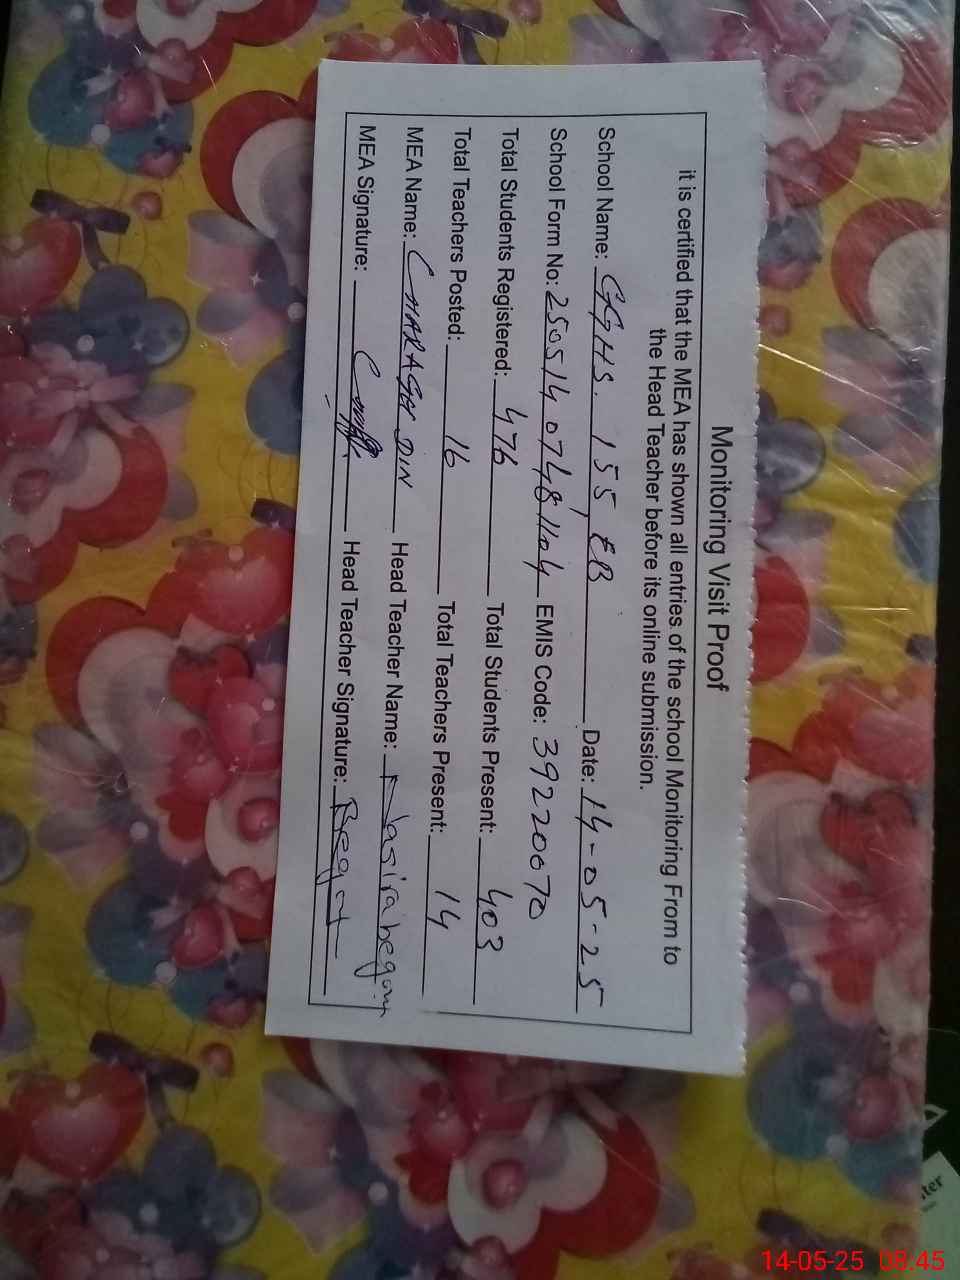 Monitoring Visit Proof
it is certified that the MEA has shown all entries of the school Monitoring From to
the Head Teacher before its online submission.
School Name: GGHS. 155, EB Date: 14-05-25
School Form No: 25051407481104 EMIS Code: 39220070
Total Students Registered: 476 Total Students Present: 403
Total Teachers Posted: 16 Total Teachers Present: 14
MEA Name: CHARAGH DIN Head Teacher Name: Nasira begum
MEA Signature: Head Teacher Signature:
ter
14-05-25 08:45